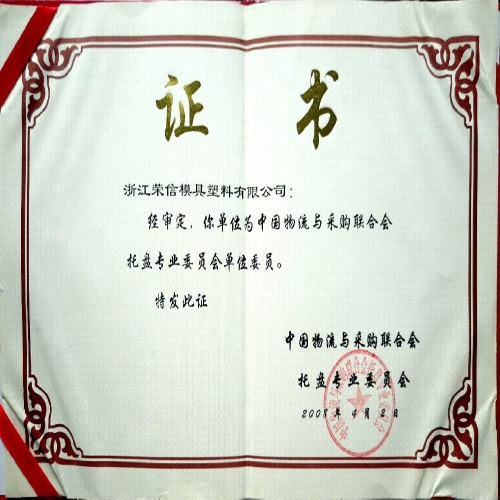 证 书
浙江荣信模具塑料有限公司：
经审定，你单位为中国物流与采购联合会
托盘专业委员会单位委员。
特发此证
中国物流与采购联合会
托盘专业委员会
2008年4月2日